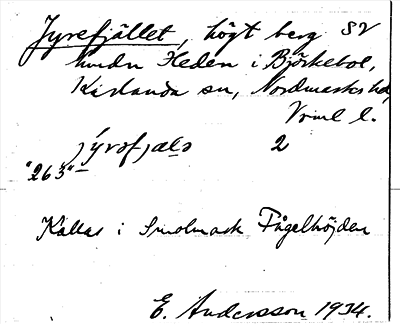 Jyrefjället, högt berg SV
hmdn Heden i Björkebol,
Karlanda sn, Nordmarks hd,
Vrml l.
jýrsfjæls 2
"263"
Kallas i Smolmark Fågelhöjden
E. Andersson 1934.